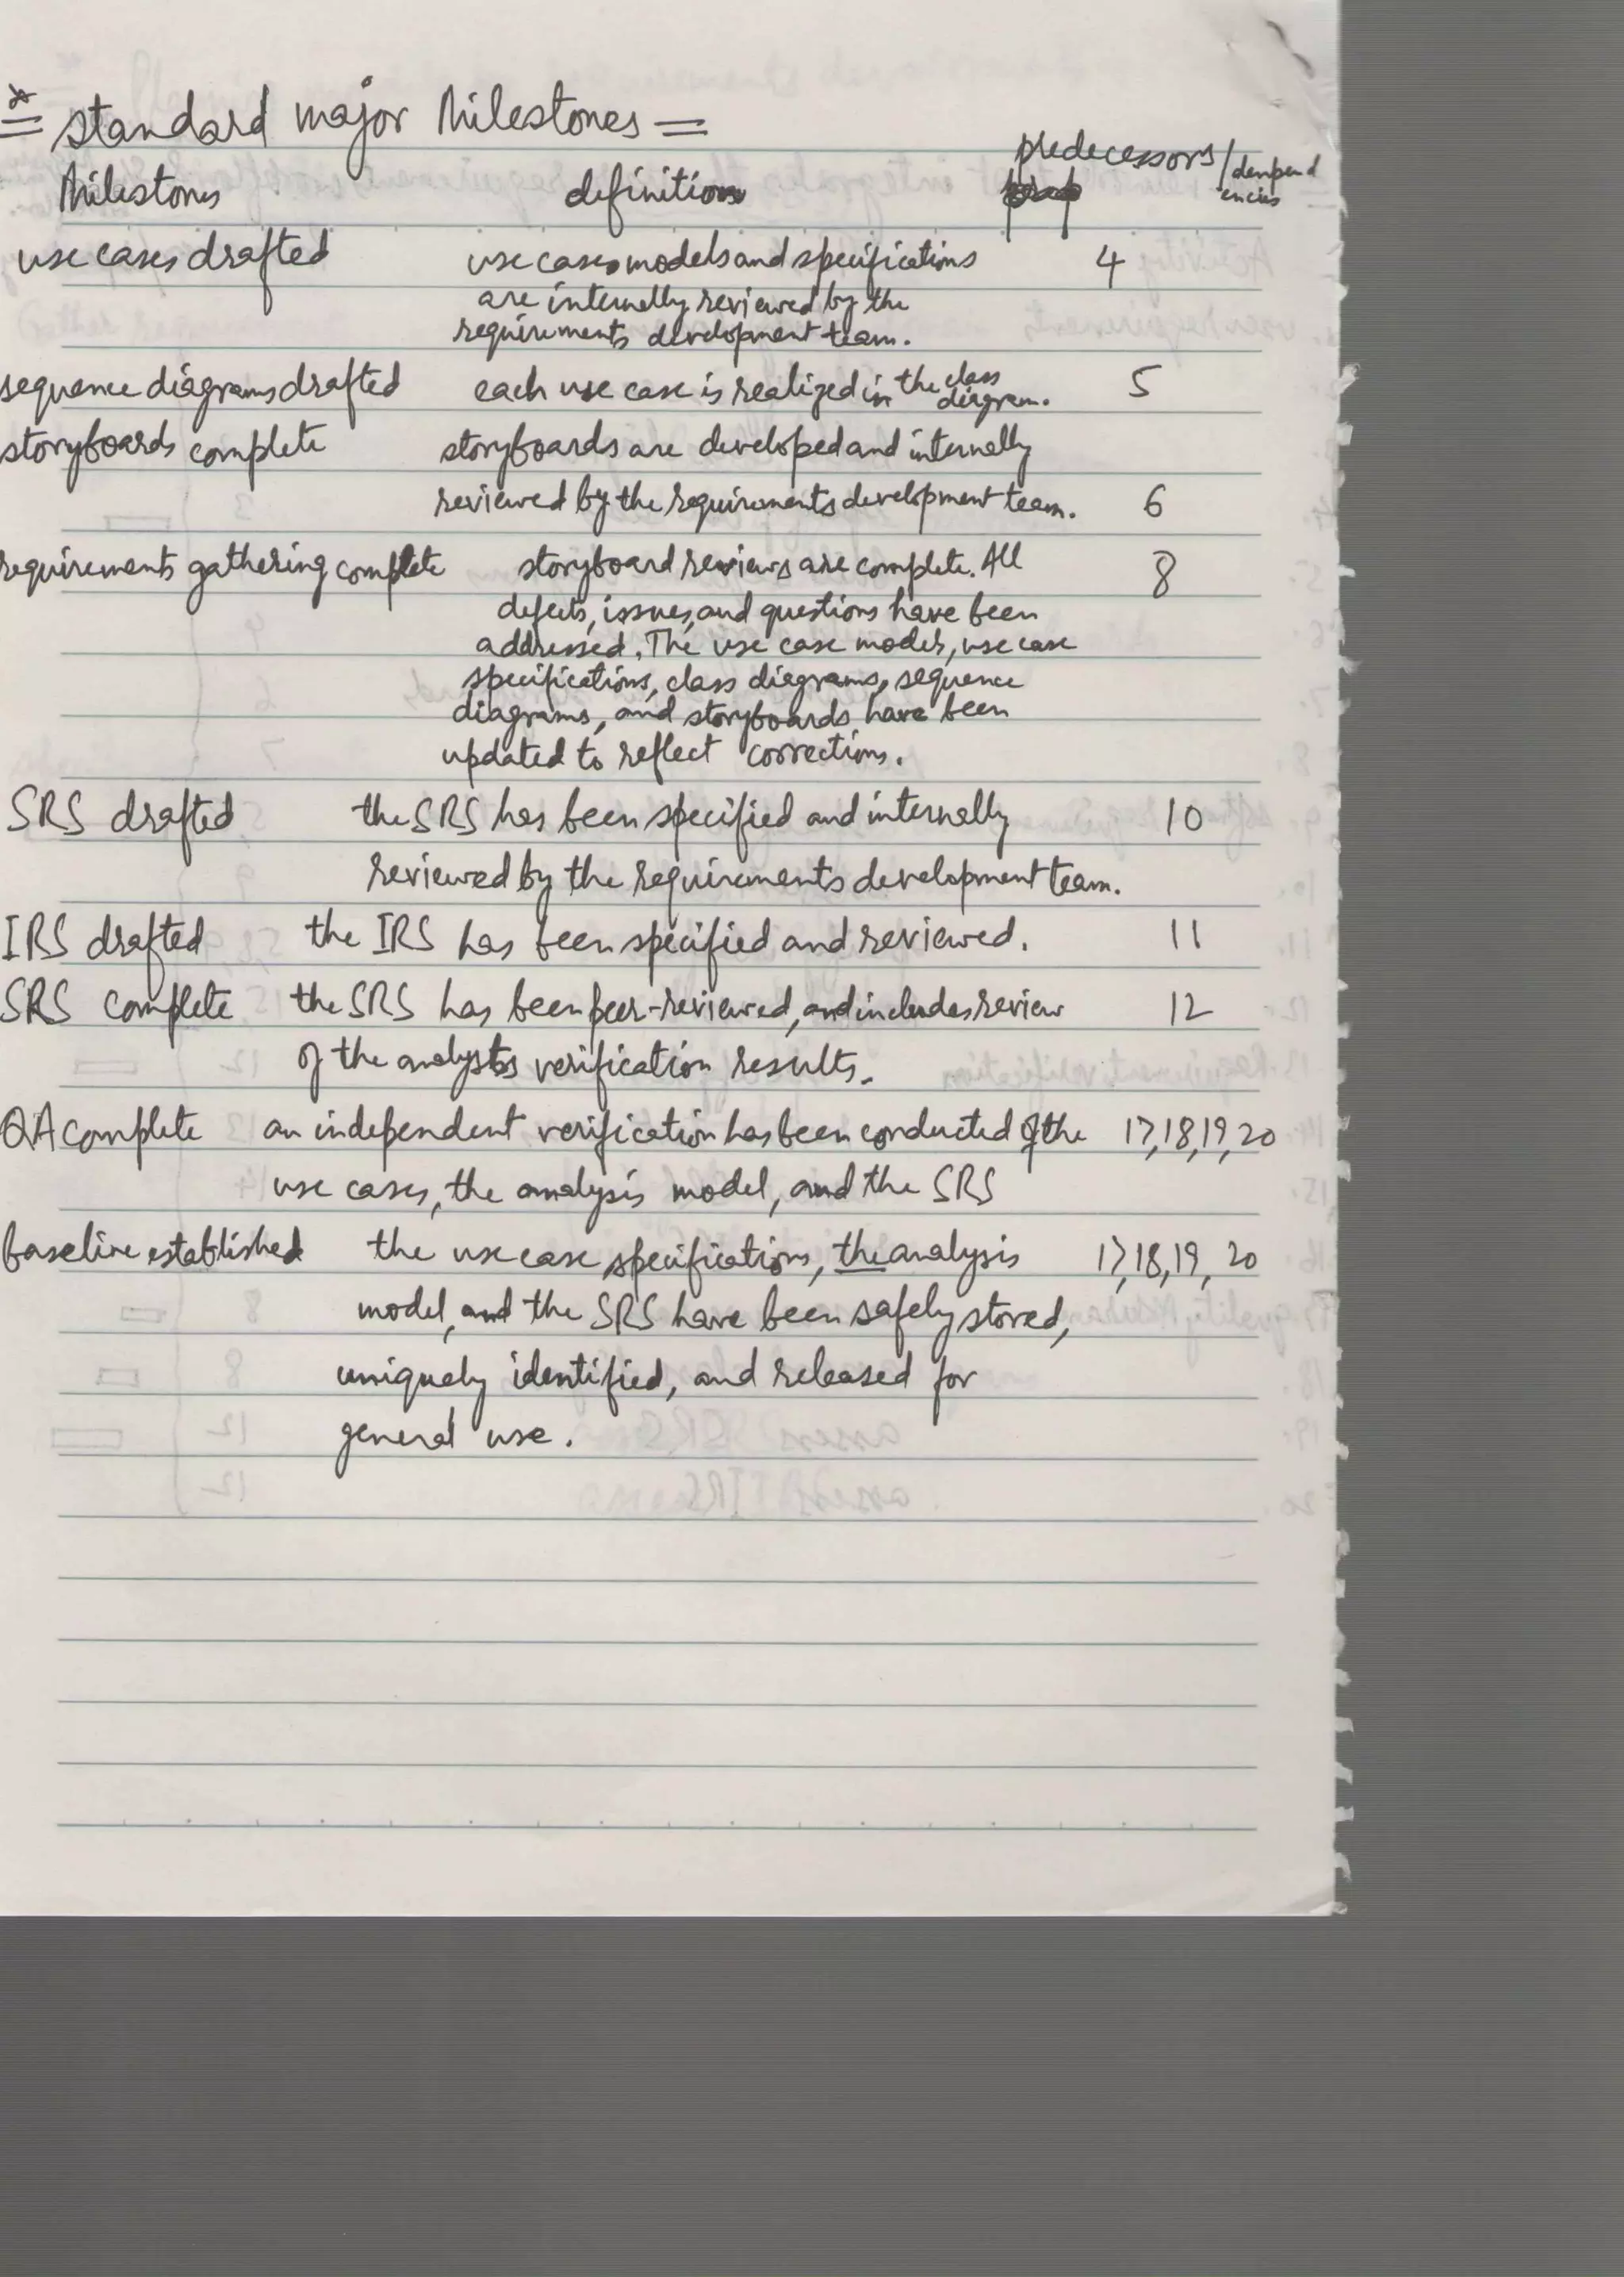 * = standard major Milestones =
predecessors / denpend
encies
Milestones definition
use cases drafted use cases models and specifications 4
are internally reviewed by the
requirements development team.
sequence diagrams drafted each use case is realized in the class diagram. 5
storyboards complete storyboards are developed and internally
reviewed by the requirements development team. 6
requirements gathering complete storyboard reviews are complete. All 8
defects, issues, and questions have been
addressed. The use case model, use case
specifications, class diagrams, sequence
diagrams, and storyboards have been
updated to reflect corrections.
SRS drafted the SRS has been specified and internally 10
reviewed by the requirements development team.
IRS drafted the IRS has been specified and reviewed. 11
SRS complete the SRS has been peer-reviewed, and includes review 12
of the analysts verification results.
QA complete an independent verification has been conducted of the 17,18,19,20
use cases, the analysis model, and the SRS
baseline established the use case specifications, the analysis 17,18,19, 20
model, and the SRS have been safely stored,
uniquely identified, and released for
general use.